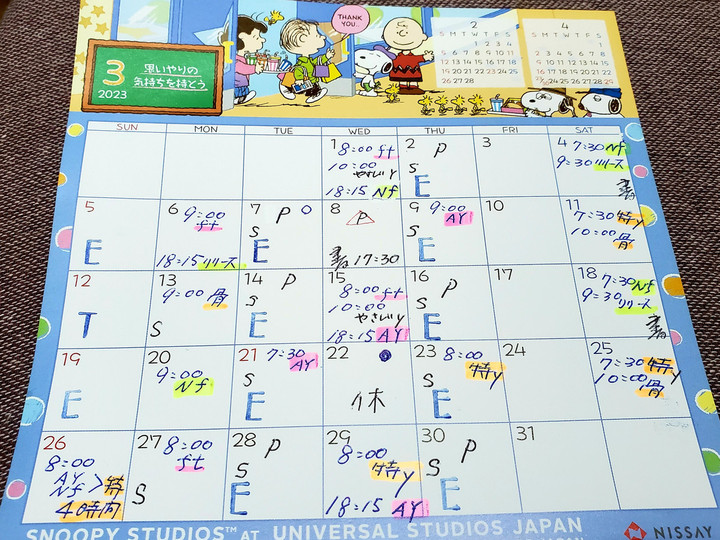 THANK YOU..
3
2023
思いやりの
気持ちを持とう
2
S M T W T F S
1 2 3 4
5 6 7 8 9 10 11
12 13 14 15 16 17 18
19 20 21 22 23 24 25
26 27 28
4
S M T W T F S
1
2 3 4 5 6 7 8
9 10 11 12 13 14 15
16 17 18 19 20 21 22
23/30 24 25 26 27 28 29
SUN MON TUE WED THU FRI SAT
1 8:00 ft
10:00
やさしいy
18:15 Nf
2 P
S
E
3
4 7:30 Nf
9:30 リリース
5
E
6 9:00
ft
18:15 リリース
7 P O
S
E
8
P
17:30
9 9:00
AY
S
E
10
11
7:30 特y
10:00 骨
12
T
13
9:00 骨
S
14 P
S
E
15
8:00 ft
10:00
やさしいy
18:15 AY
16 P
S
E
17
18 7:30 Nf
9:30 リリース
19
E
20
9:00
Nf
21 7:30
AY
S
E
22
休
23 8:00
特y
S
E
24
25
7:30 特y
10:00 骨
26
8:00
AY
Nf > 特
4時間
27 8:00
ft
S
28 P
S
E
29
8:00
特y
18:15 AY
30 P
S
E
31
SNOOPY STUDIOS™ AT UNIVERSAL STUDIOS JAPAN
NISSAY